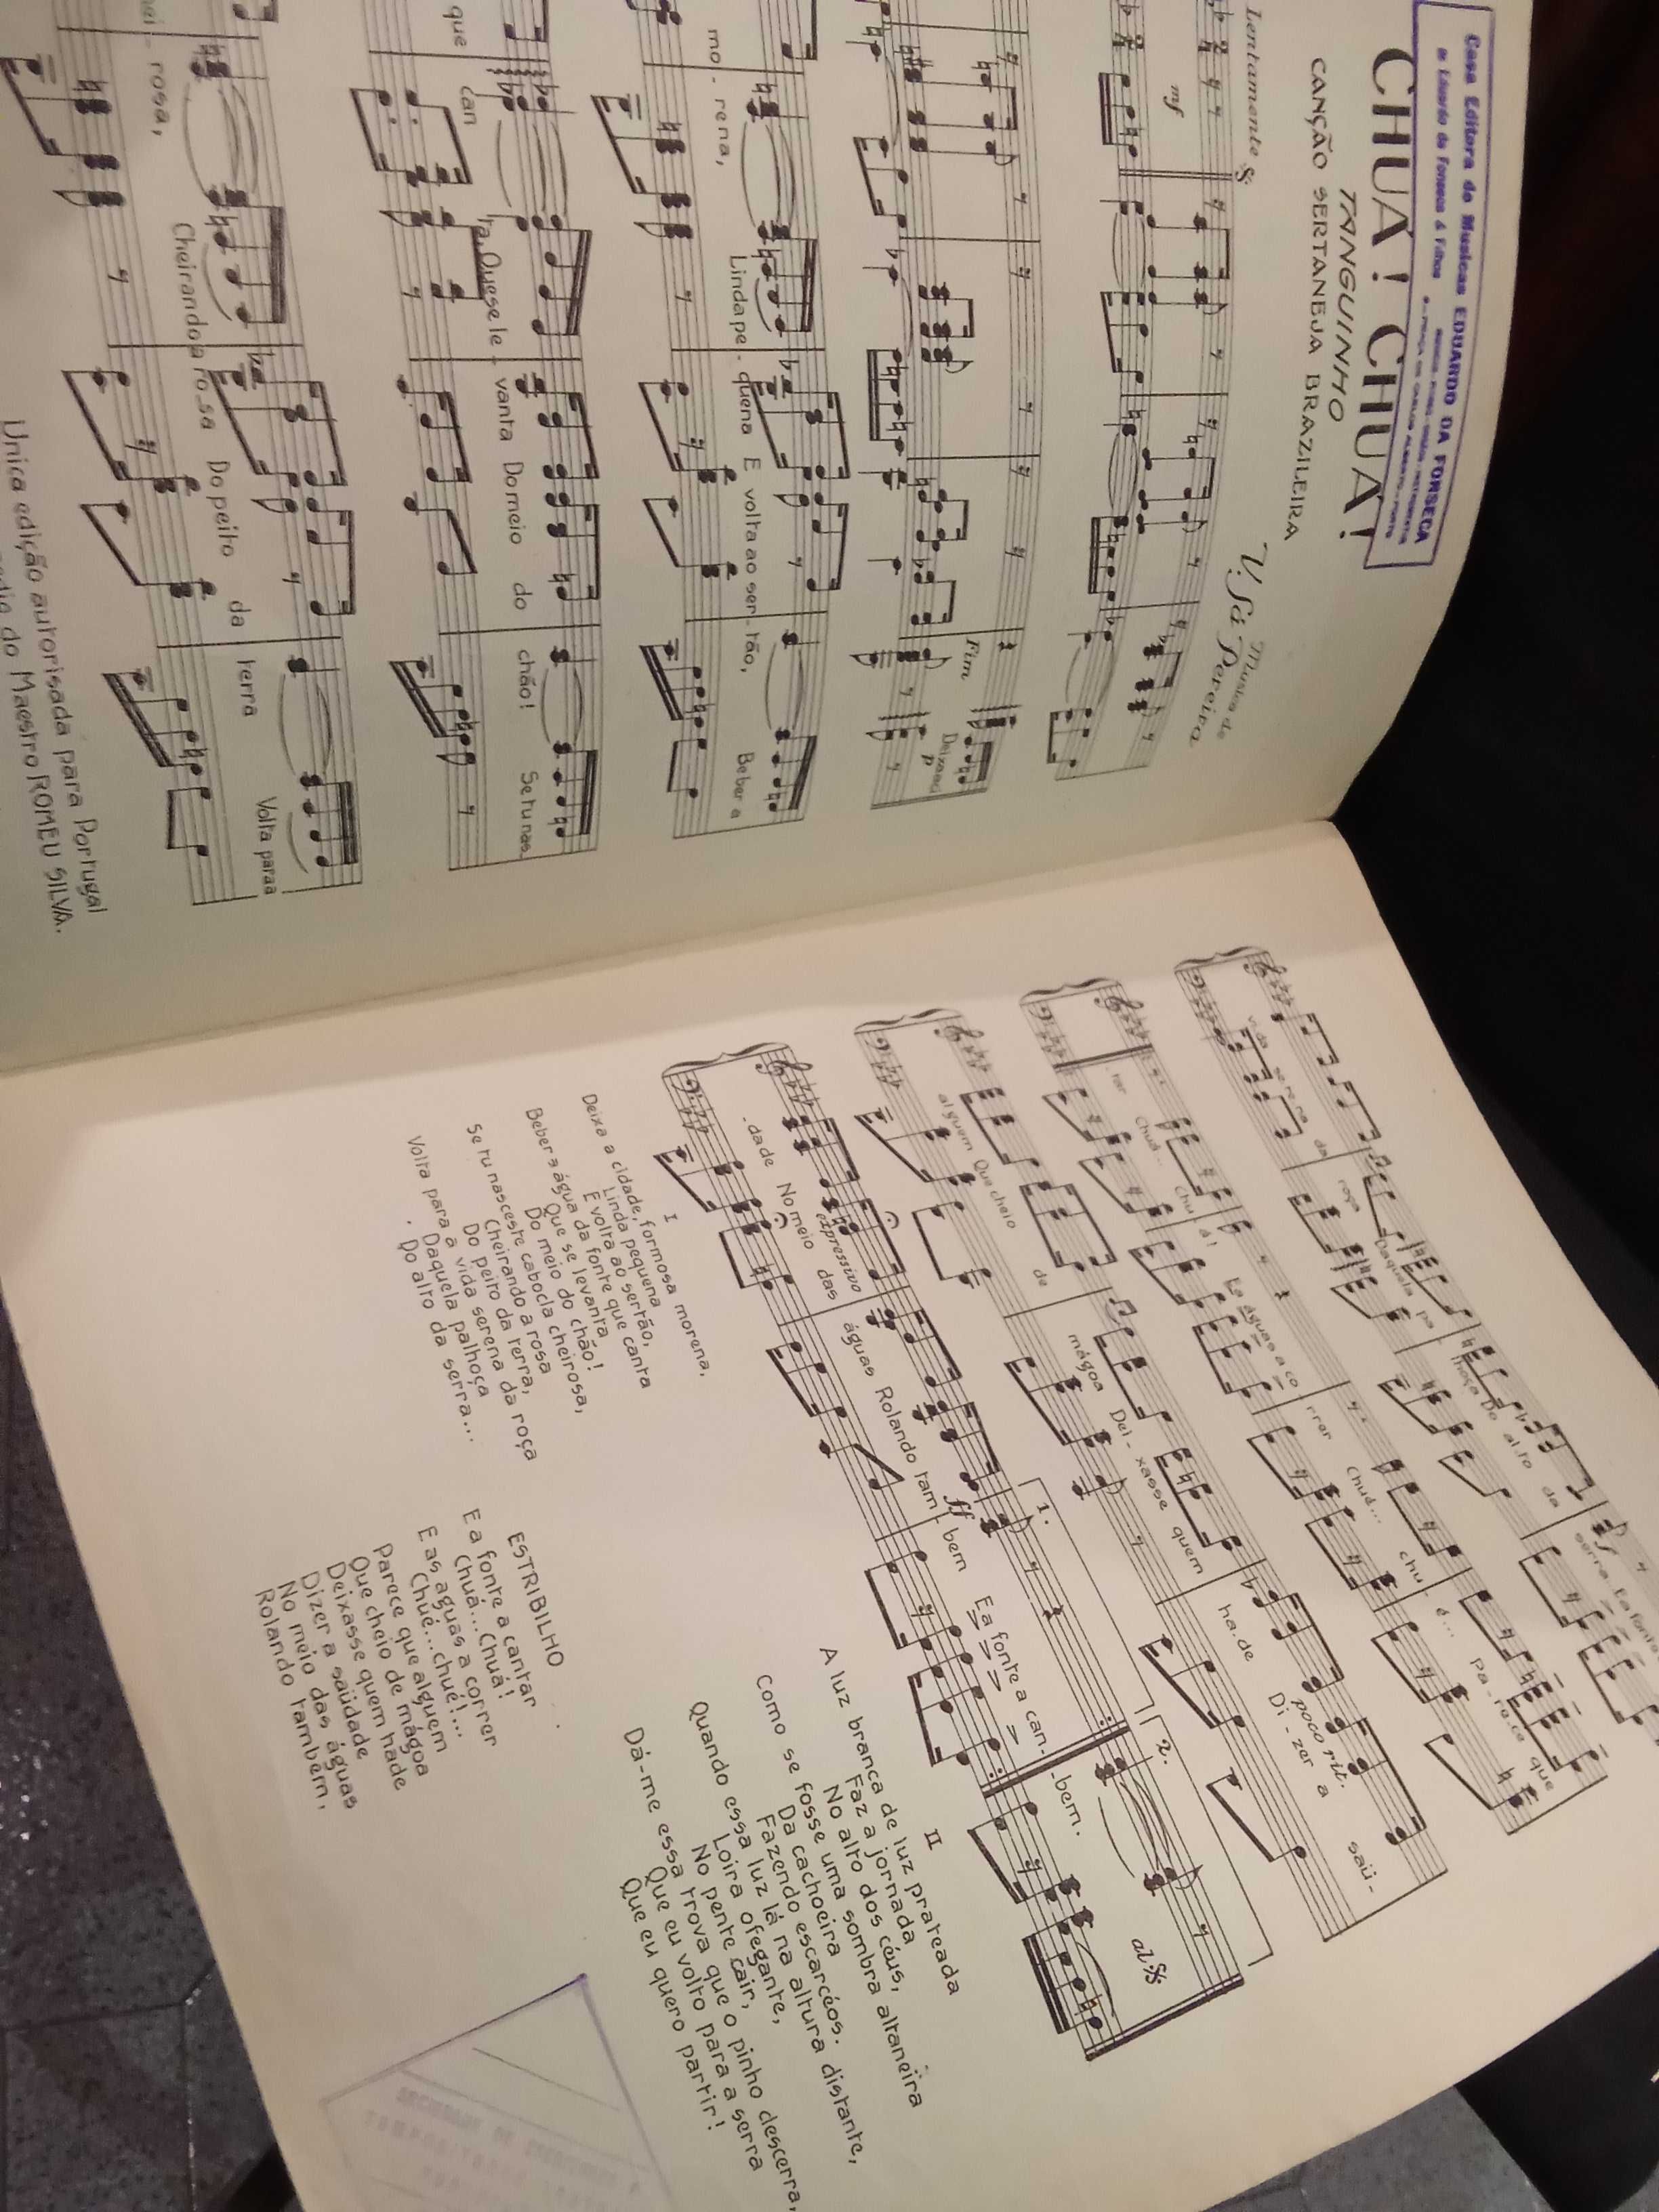 Casa Editora de Musicas EDUARDO DA FONSECA
de Eduardo da Fonseca & Filhos
CHUÁ! CHUÁ!
TANGUINHO
CANÇÃO SERTANEJA BRAZILEIRA
Musica de
V. Sá Pereira
Lentamente
mf
Fim
p
mo - rena, Linda pe - quena E volta ao ser - tão, Beber a
que can - ta, Que se le - vanta Do meio do chão! Se tu nas
rosa, Cheirando a ro - sa Do peito da terra Volta para a
Unica edição autorisada para Portugal
do Maestro ROMEU SILVA.
vida serena da roça Daquela pa lhoça Do al - to da serra E a fonte
tar Chuá... Chu - á! E a águas a co rrer Chué... chu - é... Pa - re - ce que
alguem Que cheio de mágoa Dei - xasse quem ha - de Di - zer a saü -
poco rit.
- dade No meio das águas Rolando tam - bem E a fonte a can - - bem.
expressivo
ff
1.
2.
al
I
Deixa a cidade, formosa morena,
Linda pequena
E volta ao sertão,
Beber a água da fonte que canta
Que se levanta
Do meio do chão!
Se tu nasceste cabocla cheirosa,
Cheirando a rosa
Do peito da terra,
Volta para a vida serena da roça
Daquela palhoça
Do alto da serra...
ESTRIBILHO
E a fonte a cantar
Chuá... Chuá!
E as aguas a correr
Chué... chué!...
Parece que alguem
Que cheio de mágoa
Deixasse quem hade
Dizer a saüdade
No meio das águas
Rolando também,
II
A luz branca de luz prateada
Faz a jornada
No alto dos céus,
Como se fosse uma sombra altaneira
Da cachoeira
Fazendo escarcéos.
Quando essa luz lá na altura distante,
Loira ofegante,
No pente cair,
Dá-me essa trova que o pinho descerra,
Que eu volto para a serra
Que eu quero partir!